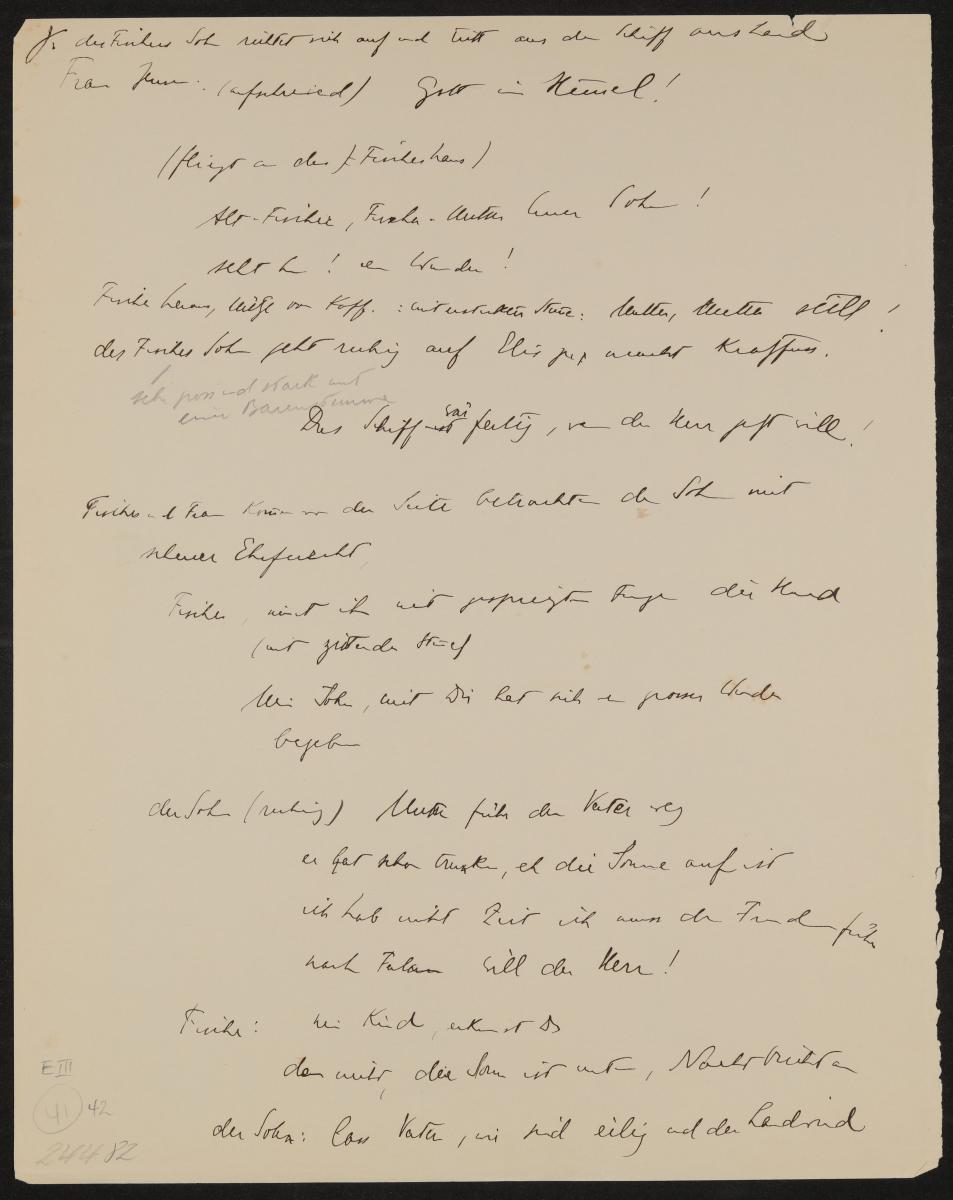 J. des Fischers Sohn richtet sich auf und tritt aus dem Schiff ans Land
Frau : (aufschreiend) Gott im Himmel!
(fliegt an das Fischerhaus)
Alt-Fischer, Fischer-Mutter Euer Sohn!
seht hin! ein Wunder!
Fischer heraus, Mütze vom Kopf. : mit erstickter Stimme: Mutter, Mutter still!
des Fischers Sohn geht ruhig auf Elis zu, macht Kratzfuss.
sehr gross und stark mit
einer Bärenstimme
Das Schiff ist wär fertig, wenn der Herr jetzt will!
Fischer und Frau kommen von der Seite betrachten den Sohn mit
scheuer Ehrfurcht,
Fischer, nimmt ihn mit gespreizten Fingern die Hand
(mit zitternder Stimme)
Mein Sohn, mit Dir hat sich ein grosses Wunder
begeben
der Sohn (ruhig) Mutter führ den Vater weg
er hat schon trunken, eh die Sonne auf ist
ich hab nicht Zeit ich muss den Fremden führen
nach Falun will der Herr!
Fischer: mein Kind, erkennst Du
denn nicht, die Sonn ist unten, Nacht bricht an
der Sohn: lass Vater, wir sind eilig und der Landwind
E III
41 42
24482